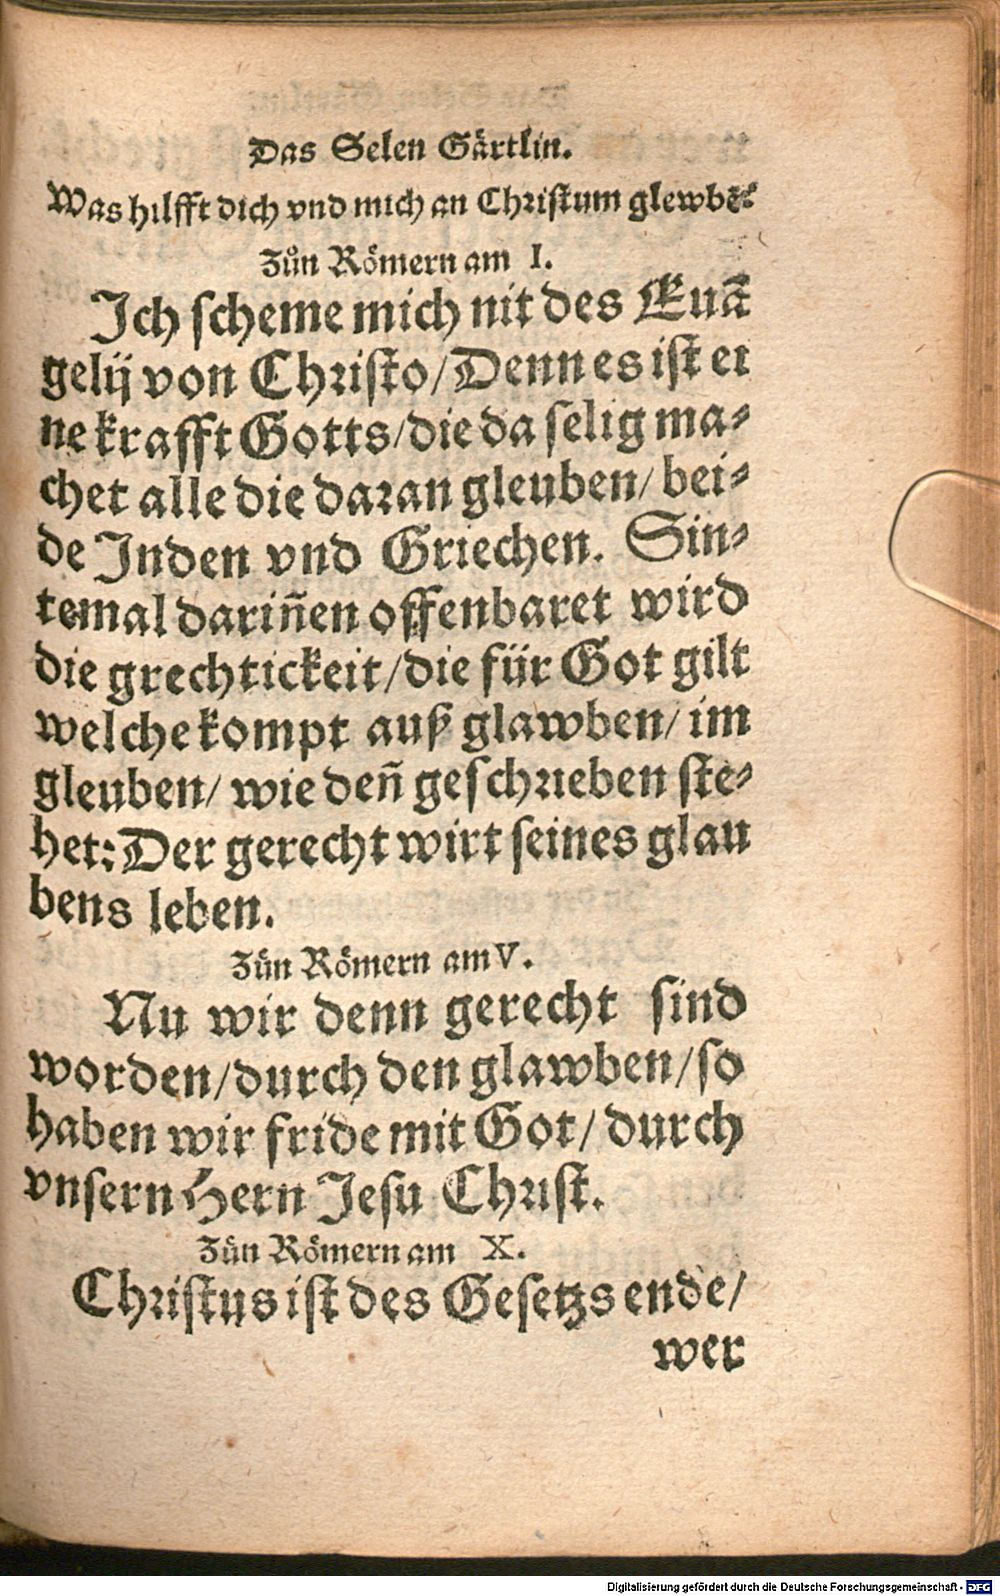 Das Selen Gärtlin.
Was hilfft dich vnd mich an Christum glewbē?
Zůn Römern am I.
Ich scheme mich nit des Euā
gelij von Christo/Denn es ist ei
ne krafft Gotts/die da selig ma-
chet alle die daran gleuben/ bei-
de Inden vnd Griechen. Sin-
temal dariñen offenbaret wird
die grechtickeit/die für Got gilt
welche kompt auß glawben/ im
gleuben/ wie deñ geschrieben ste-
het: Der gerecht wirt seines glau
bens leben.
Zůn Römern am V.
Nu wir denn gerecht sind
worden/durch den glawben/so
haben wir fride mit Got/ durch
vnsern Hern Jesu Christ.
Zůn Römern am X.
Christus ist des Gesetzs ende/
wer
Digitalisierung gefördert durch die Deutsche Forschungsgemeinschaft - DFG